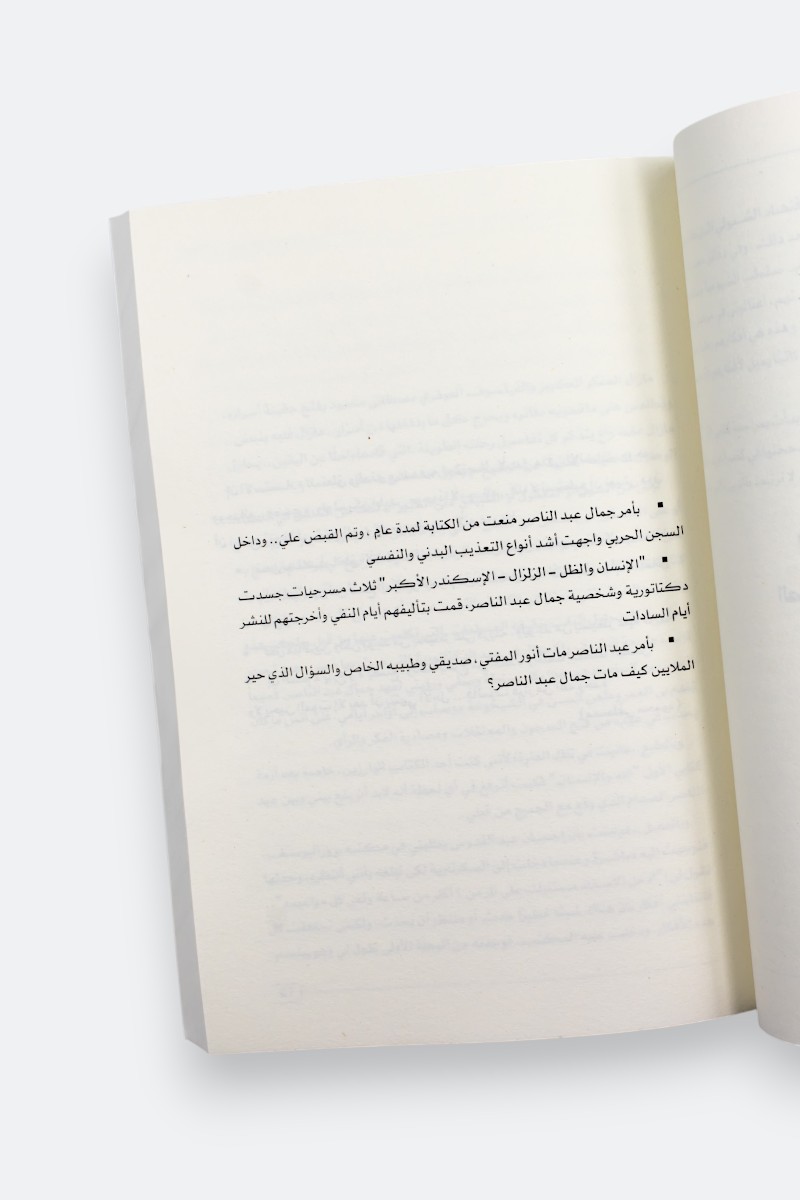 ▪ بأمر جمال عبد الناصر منعت من الكتابة لمدة عامٍ ، وتم القبض عليّ.. وداخل
السجن الحربي واجهت أشد أنواع التعذيب البدني والنفسي
▪ "الإنسان والظل – الزلزال – الإسكندر الأكبر" ثلاث مسرحيات جسدت
دكتاتورية وشخصية جمال عبد الناصر، قمت بتأليفهم أيام النفي وأخرجتهم للنشر
أيام السادات
▪ بأمر عبد الناصر مات أنور المفتي، صديقي وطبيبه الخاص والسؤال الذي حير
الملايين كيف مات جمال عبد الناصر؟